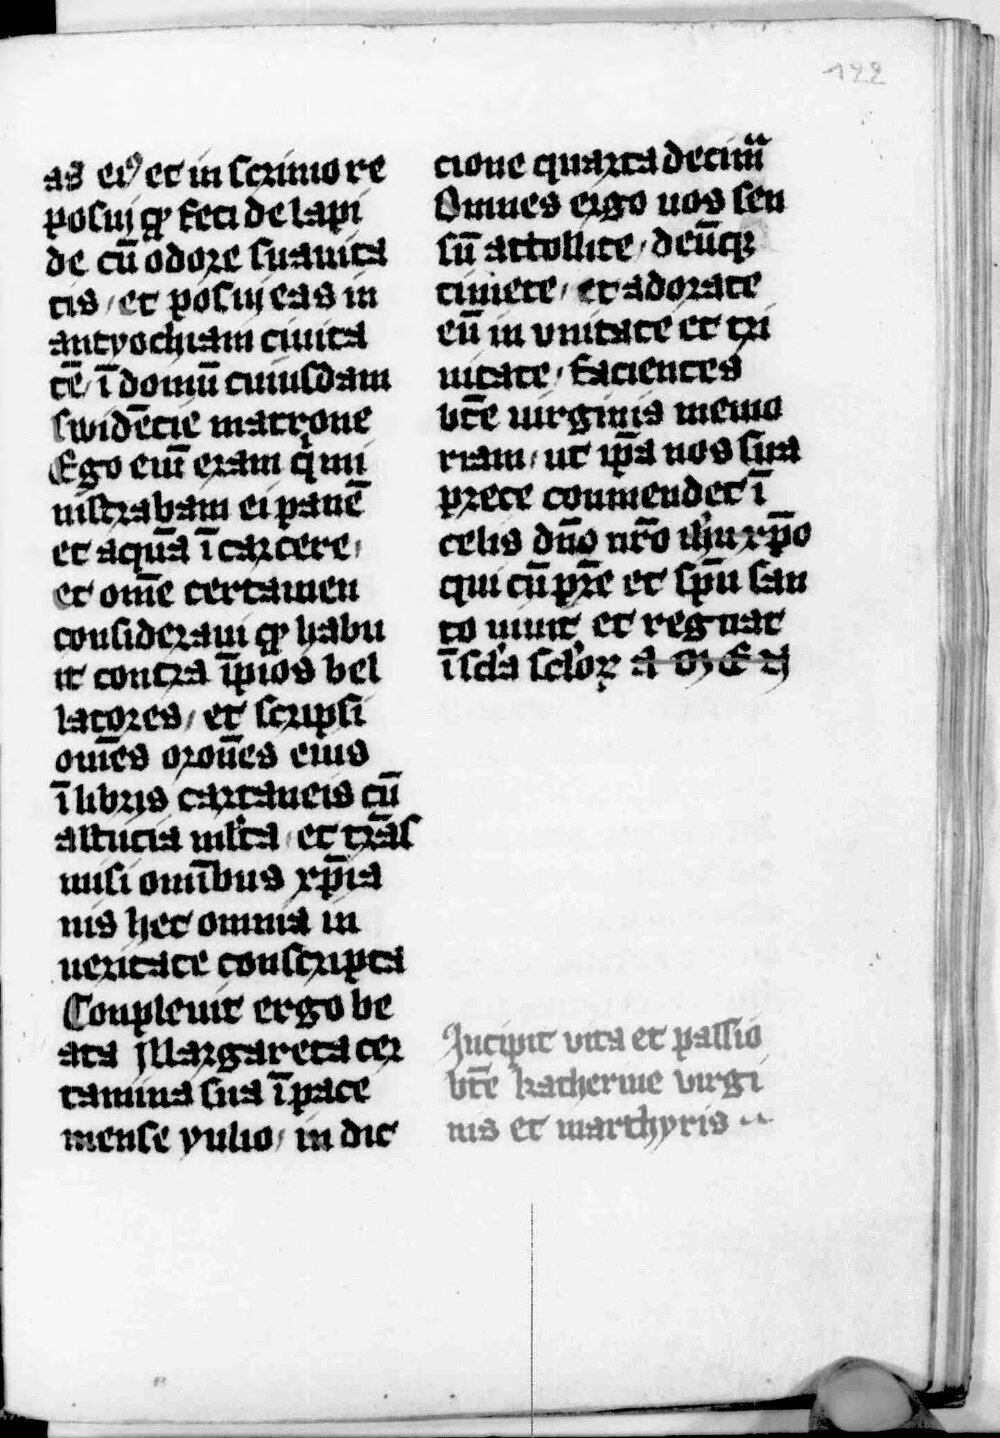 122
as eiꝰ et in scrinio re
posui qͥ feci de lapi
de cū odore suauita
tis / et posui eas in
antyochiam ciuita
tē / ī domū cuiusdam
matrone
Ego eni̅ eram q̇ mi
nistrabam ei panē
et aquā ī carcere /
et om̄e certamen
consideraui habu
it contra īpios bel
latores / et scripsi
om̄es or̄ones eius
ī libris cartaneis cū
astucia ml̄ta / et trās
misi omībus xp̄ia
nis hec omnia in
ueritate conscripta
Conpleuit ergo be
ata Margareta cer
tamina sua ī pace
mense yulio / in dic
cione quarta decima
Omnes ergo uos sen
sū attollite / deūqꝫ
timete / et adorate
eū in vnitate et tri
nitate / facientes
bt̄e uirginis memo
riam / ut ip̄a nos sua
prece conmendet ī
celis dn̄o nr̄o ih̄u xp̄o
qui cū pr̄e et sp̄u san
to uiuit et regnat
ī scl̄a scl̄oꝝ A M E N
Incipit vita et passio
bt̄e katherine virgi
nis et marthyris